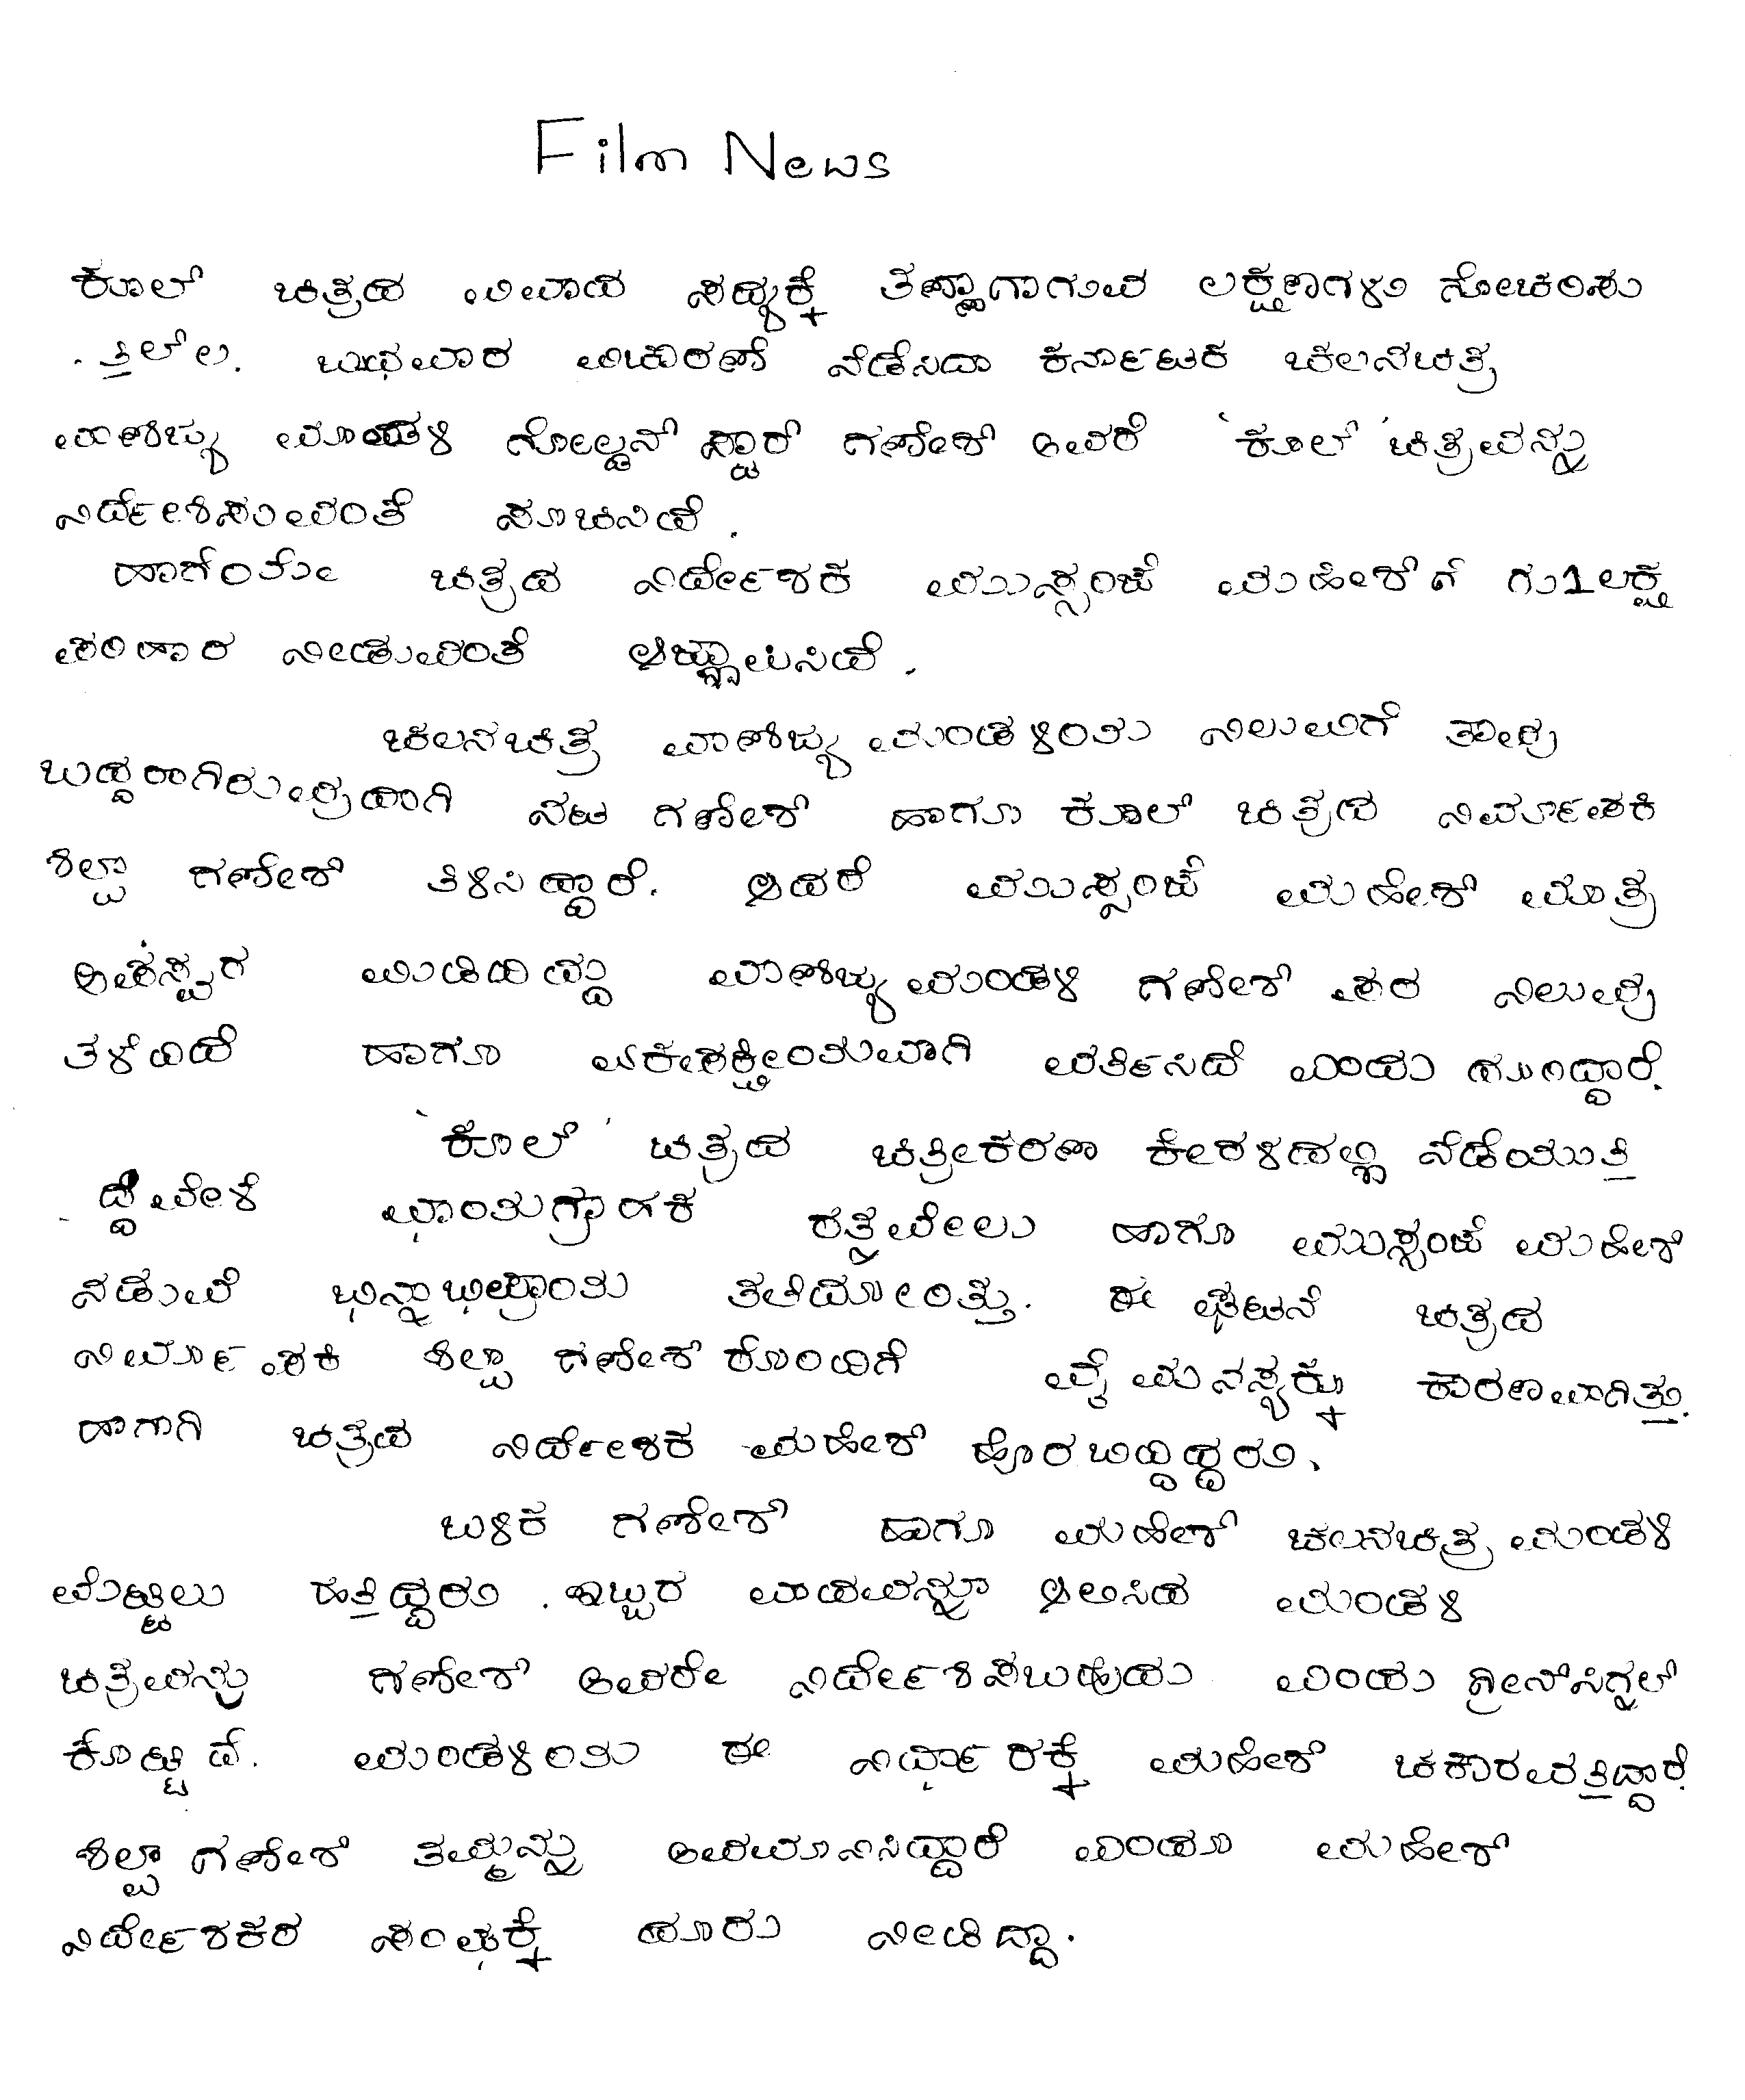 Film News
ಕೂಲ್ ಚಿತ್ರದ ವಿವಾದ ಸದ್ಯಕ್ಕೆ ತಣ್ಣಾಗಾಗುವ ಲಕ್ಷಣಗಳು ಗೋಚರಿಸು
ತ್ತಿಲ್ಲ. ಬುಧವಾರ ವಿಚಾರಣೆ ನೆಡೆಸಿದಾ ಕರ್ನಾಟಕ ಚಲನಚಿತ್ರ
ವಾಣಿಜ್ಯ ಮಂಡಳಿ ಗೋಲ್ಡನ್ ಸ್ಟಾರ್ ಗಣೇಶ್ ಅವರೆ 'ಕೂಲ್' ಚಿತ್ರವನ್ನು
ನಿರ್ದೇಶಿಸುವಂತೆ ಸೂಚಿಸಿದೆ.
ಹಾಗೆಯೇ ಚಿತ್ರದ ನಿರ್ದೇಶಕ ಮುಸ್ಸಂಜೆ ಮಹೇಶ್‌ಗೆ ರು1ಲಕ್ಷ
ಪರಿಹಾರ ನೀಡುವಂತೆ ಆಜ್ಞಾಪಿಸಿದೆ.
ಚಲನಚಿತ್ರ ವಾಣಿಜ್ಯ ಮಂಡಳಿಯ ನಿಲುವಿಗೆ ತಾವು
ಬದ್ದರಾಗಿರುವುದಾಗಿ ನಟ ಗಣೇಶ್ ಹಾಗೂ ಕೂಲ್ ಚಿತ್ರದ ನಿರ್ಮಾಪಕಿ
ಶಿಲ್ಪಾ ಗಣೇಶ್ ತಿಳಿಸಿದ್ದಾರೆ. ಆದರೆ ಮುಸ್ಸಂಜೆ ಮಹೇಶ್ ಮಾತ್ರ
ಅಪಸ್ವರ ಮಿಡಿದಿದ್ದು ವಾಣಿಜ್ಯ ಮಂಡಳಿ ಗಣೇಶ್ ಪರ ನಿಲುವು
ತಳೆದಿದೆ ಹಾಗೂ ಏಕಪಕ್ಷೀಯವಾಗಿ ವರ್ತಿಸಿದೆ ಎಂದು ದೂರಿದ್ದಾರೆ.
'ಕೂಲ್' ಚಿತ್ರದ ಚಿತ್ರೀಕರಣ ಕೇರಳದಲ್ಲಿ ನೆಡೆಯುತ್ತಿ
ದ್ದವೇಳೆ ಛಾಯಗ್ರಾಹಕ ರತ್ನವೇಲು ಹಾಗೂ ಮುಸ್ಸಂಜೆ ಮಹೇಶ್
ನಡುವೆ ಭಿನ್ನಾಭಿಪ್ರಾಯ ತಲೆದೋರಿತ್ತು. ಈ ಘಟನೆ ಚಿತ್ರದ
ನಿರ್ಮಾಪಕಿ ಶಿಲ್ಪಾ ಗಣೇಶ್ ರೊಂದಿಗೆ ವೈಮನಸ್ಯಕ್ಕೂ ಕಾರಣವಾಗಿತ್ತು.
ಹಾಗಾಗಿ ಚಿತ್ರದ ನಿರ್ದೇಶಕ ಮಹೇಶ್ ಹೊರ ಬಿದ್ದಿದ್ದರು.
ಬಳಿಕ ಗಣೇಶ್ ಹಾಗೂ ಮಹೇಶ್ ಚಲನಚಿತ್ರ ಮಂಡಳಿ
ಮೆಟ್ಟಿಲು ಹತ್ತಿದ್ದರು. ಇಬ್ಬರ ವಾದವನ್ನೂ ಆಲಿಸಿದ ಮಂಡಳಿ
ಚಿತ್ರವನ್ನು ಗಣೇಶ್ ಅವರೇ ನಿರ್ದೇಶಿಸಬಹುದು ಎಂದು ಗ್ರೀನ್‌ಸಿಗ್ನಲ್
ಕೊಟ್ಟಿದೆ. ಮಂಡಳಿಯ ಈ ನಿರ್ಧಾರಕ್ಕೆ ಮಹೇಶ್ ಚಕಾರವೆತ್ತಿದ್ದಾರೆ.
ಶಿಲ್ಪಾ ಗಣೇಶ್ ತಮ್ಮನ್ನು ಅವಮಾನಿಸಿದ್ದಾರೆ ಎಂದೂ ಮಹೇಶ್
ನಿರ್ದೇಶಕರ ಸಂಘಕ್ಕೆ ದೂರು ನೀಡಿದ್ದಾ.